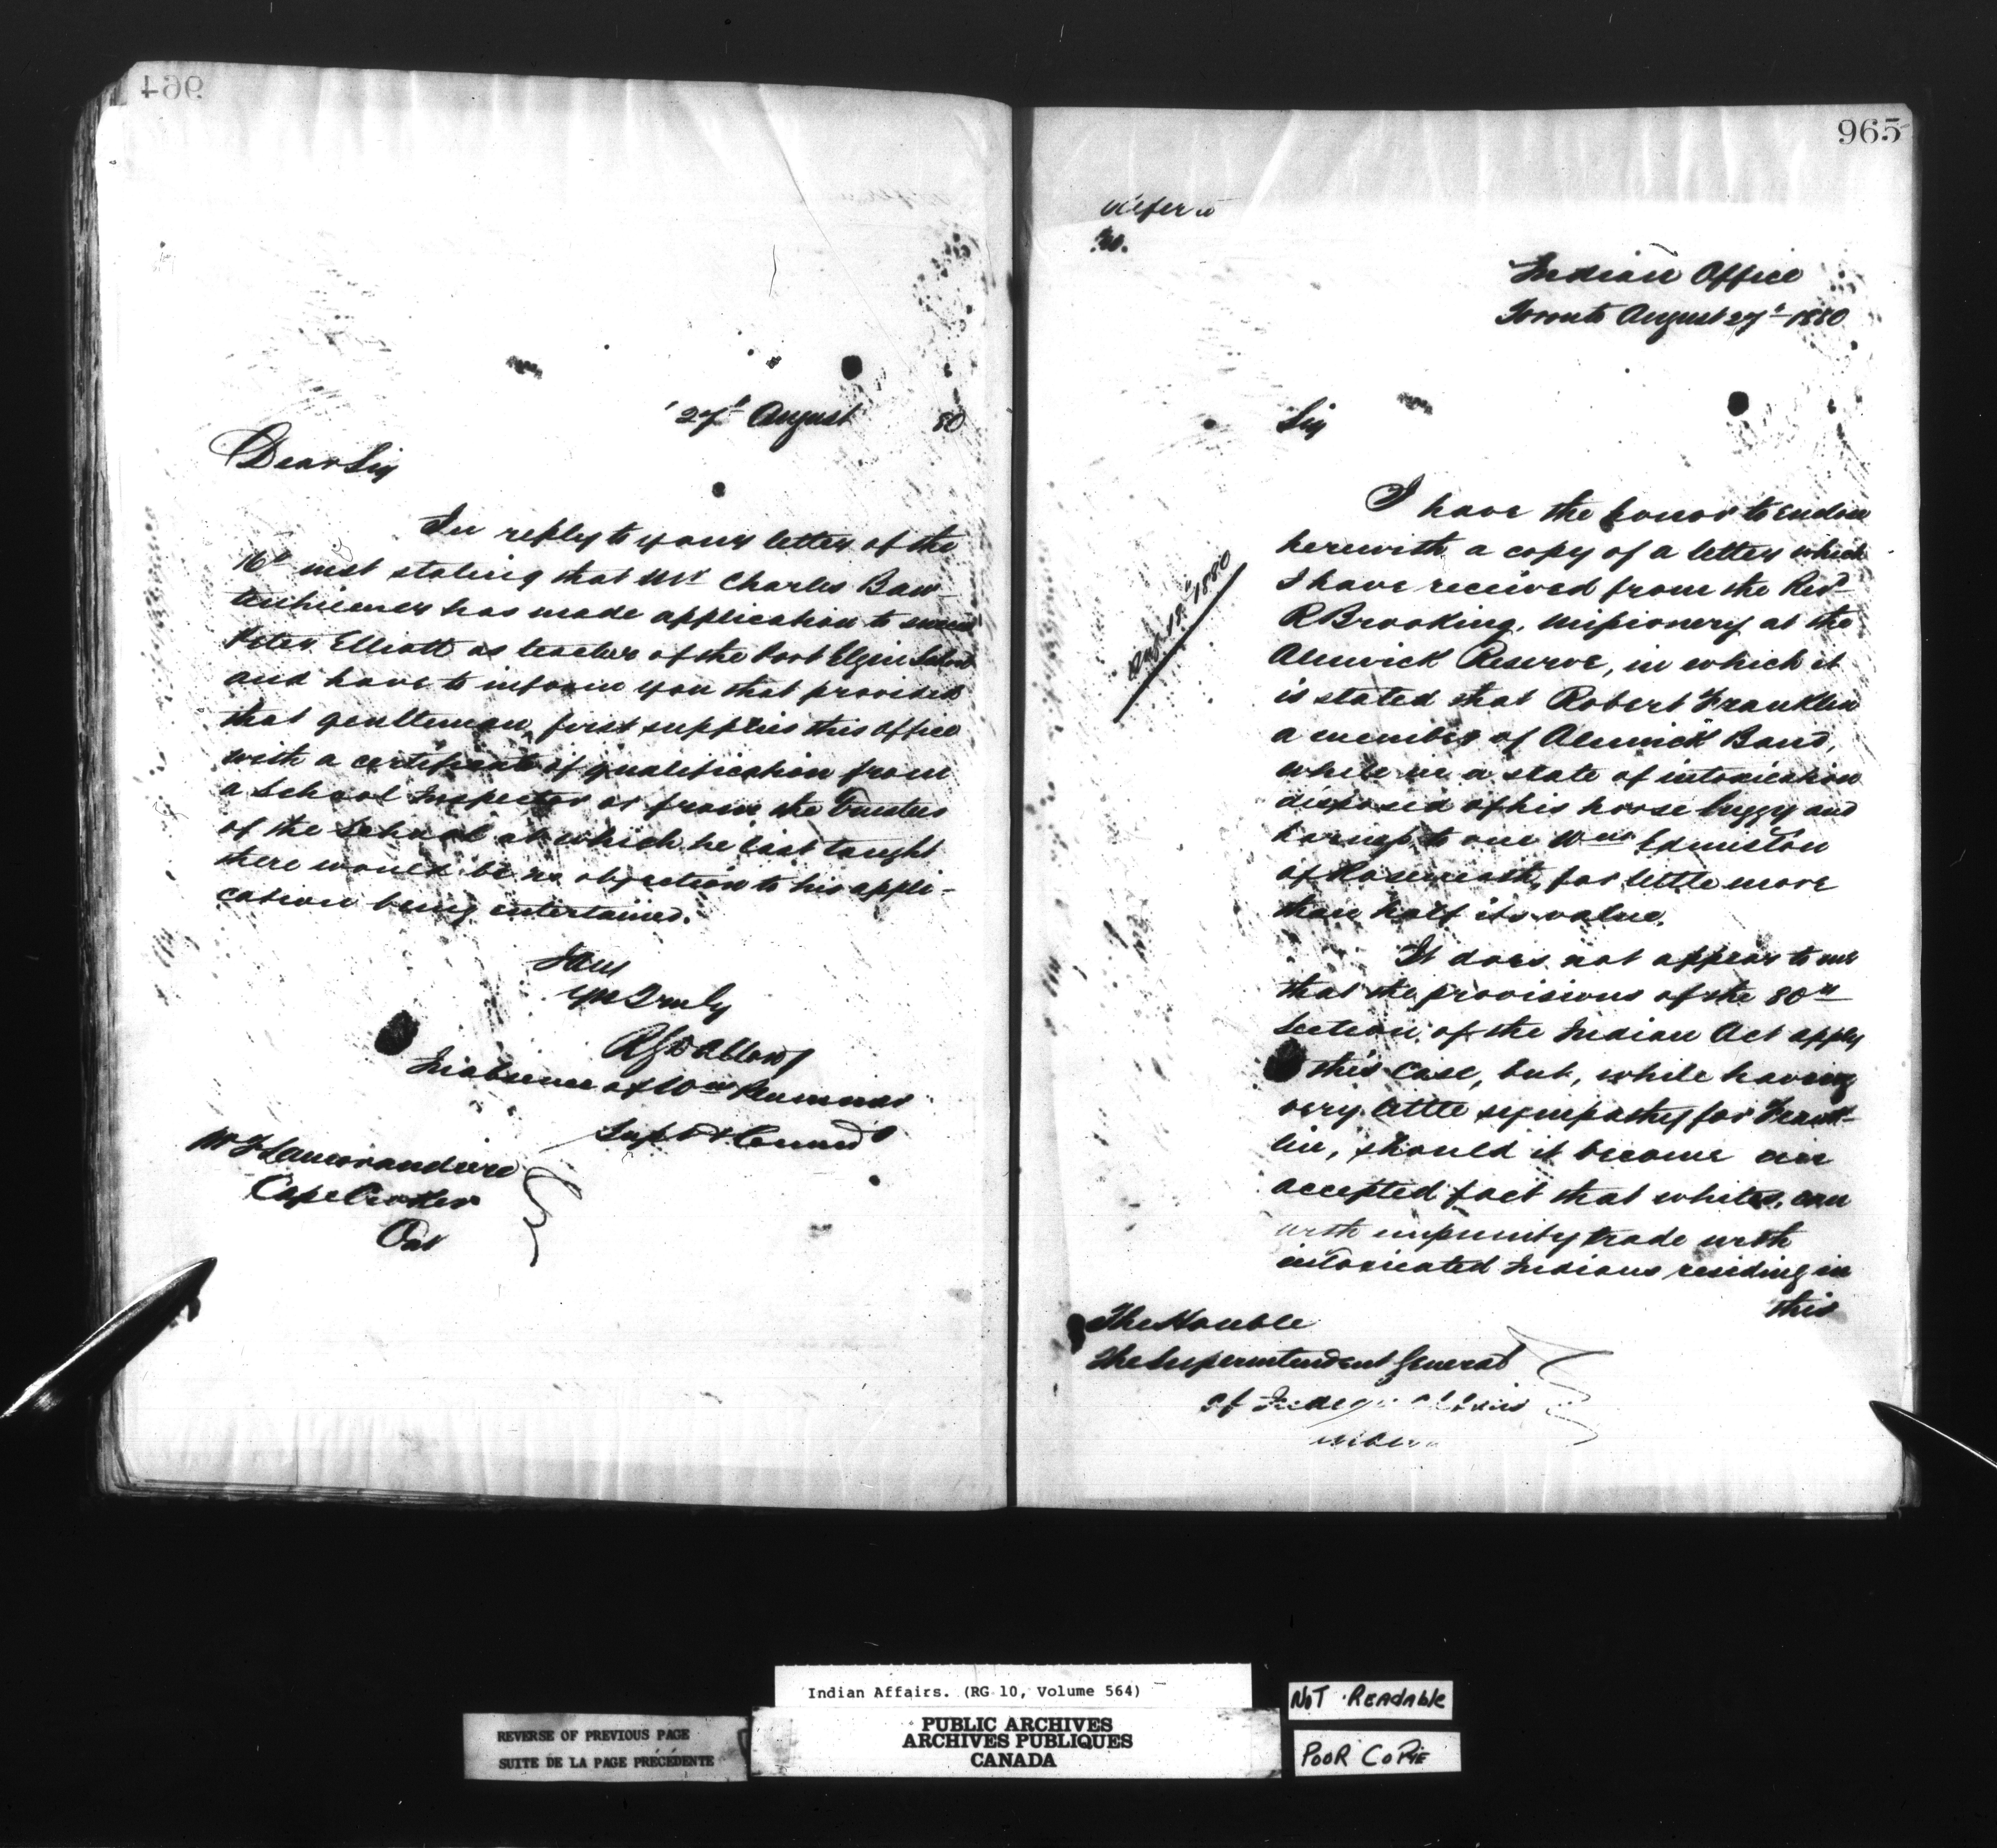 964
27th August 80
Dear Sir
In reply to your letter of the
16th inst stating that Mr Charles Baw-
has made application to succeed
Peter Elliott as teacher of the Port Elgin School
and have to inform you that provided
that gentleman first supplies this Office
with a certificate of qualification from
a School Inspector or from the Trustees
of the School at which he last taught
there would be no objection to his appli-
cation being entertained.
I am
Yrs Truly
In absence of Wm Plummer
Supt & Commr
W J Lamorandiere
Cape Croker
Ont
965
Refer to
Indian Office
Toronto August 27th 1880
Sir
I have the honor to enclose
herewith a copy of a letter which
I have received from the Revd
R Brooking, Missionery at the
Alnwick Reserve, in which it
is stated that Robert Franklin
a member of Alnwick Band,
while in a state of intoxication
disposed of his horse buggy and
harness to one Wm Edmiston
of Roseneath, for little more
than half its value.
1880
It does not appear to me
that the provisions of the 80th
Section of the Indian Act apply
this case, but, while having
very little sympathy for Frank-
lin, should it become an
accepted fact that whites, can
with impunity trade with
intoxicated Indians residing in
this
The Honble
The Superintendent General
of Indian Affairs
Indian Affairs. (RG 10, Volume 564)
REVERSE OF PREVIOUS PAGE
SUITE DE LA PAGE PRÉCÉDENTE
PUBLIC ARCHIVES
ARCHIVES PUBLIQUES
CANADA
NOT READABLE
POOR COPIE